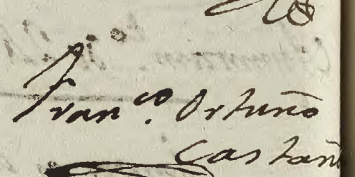 Fran.co Ortuño
Castañ